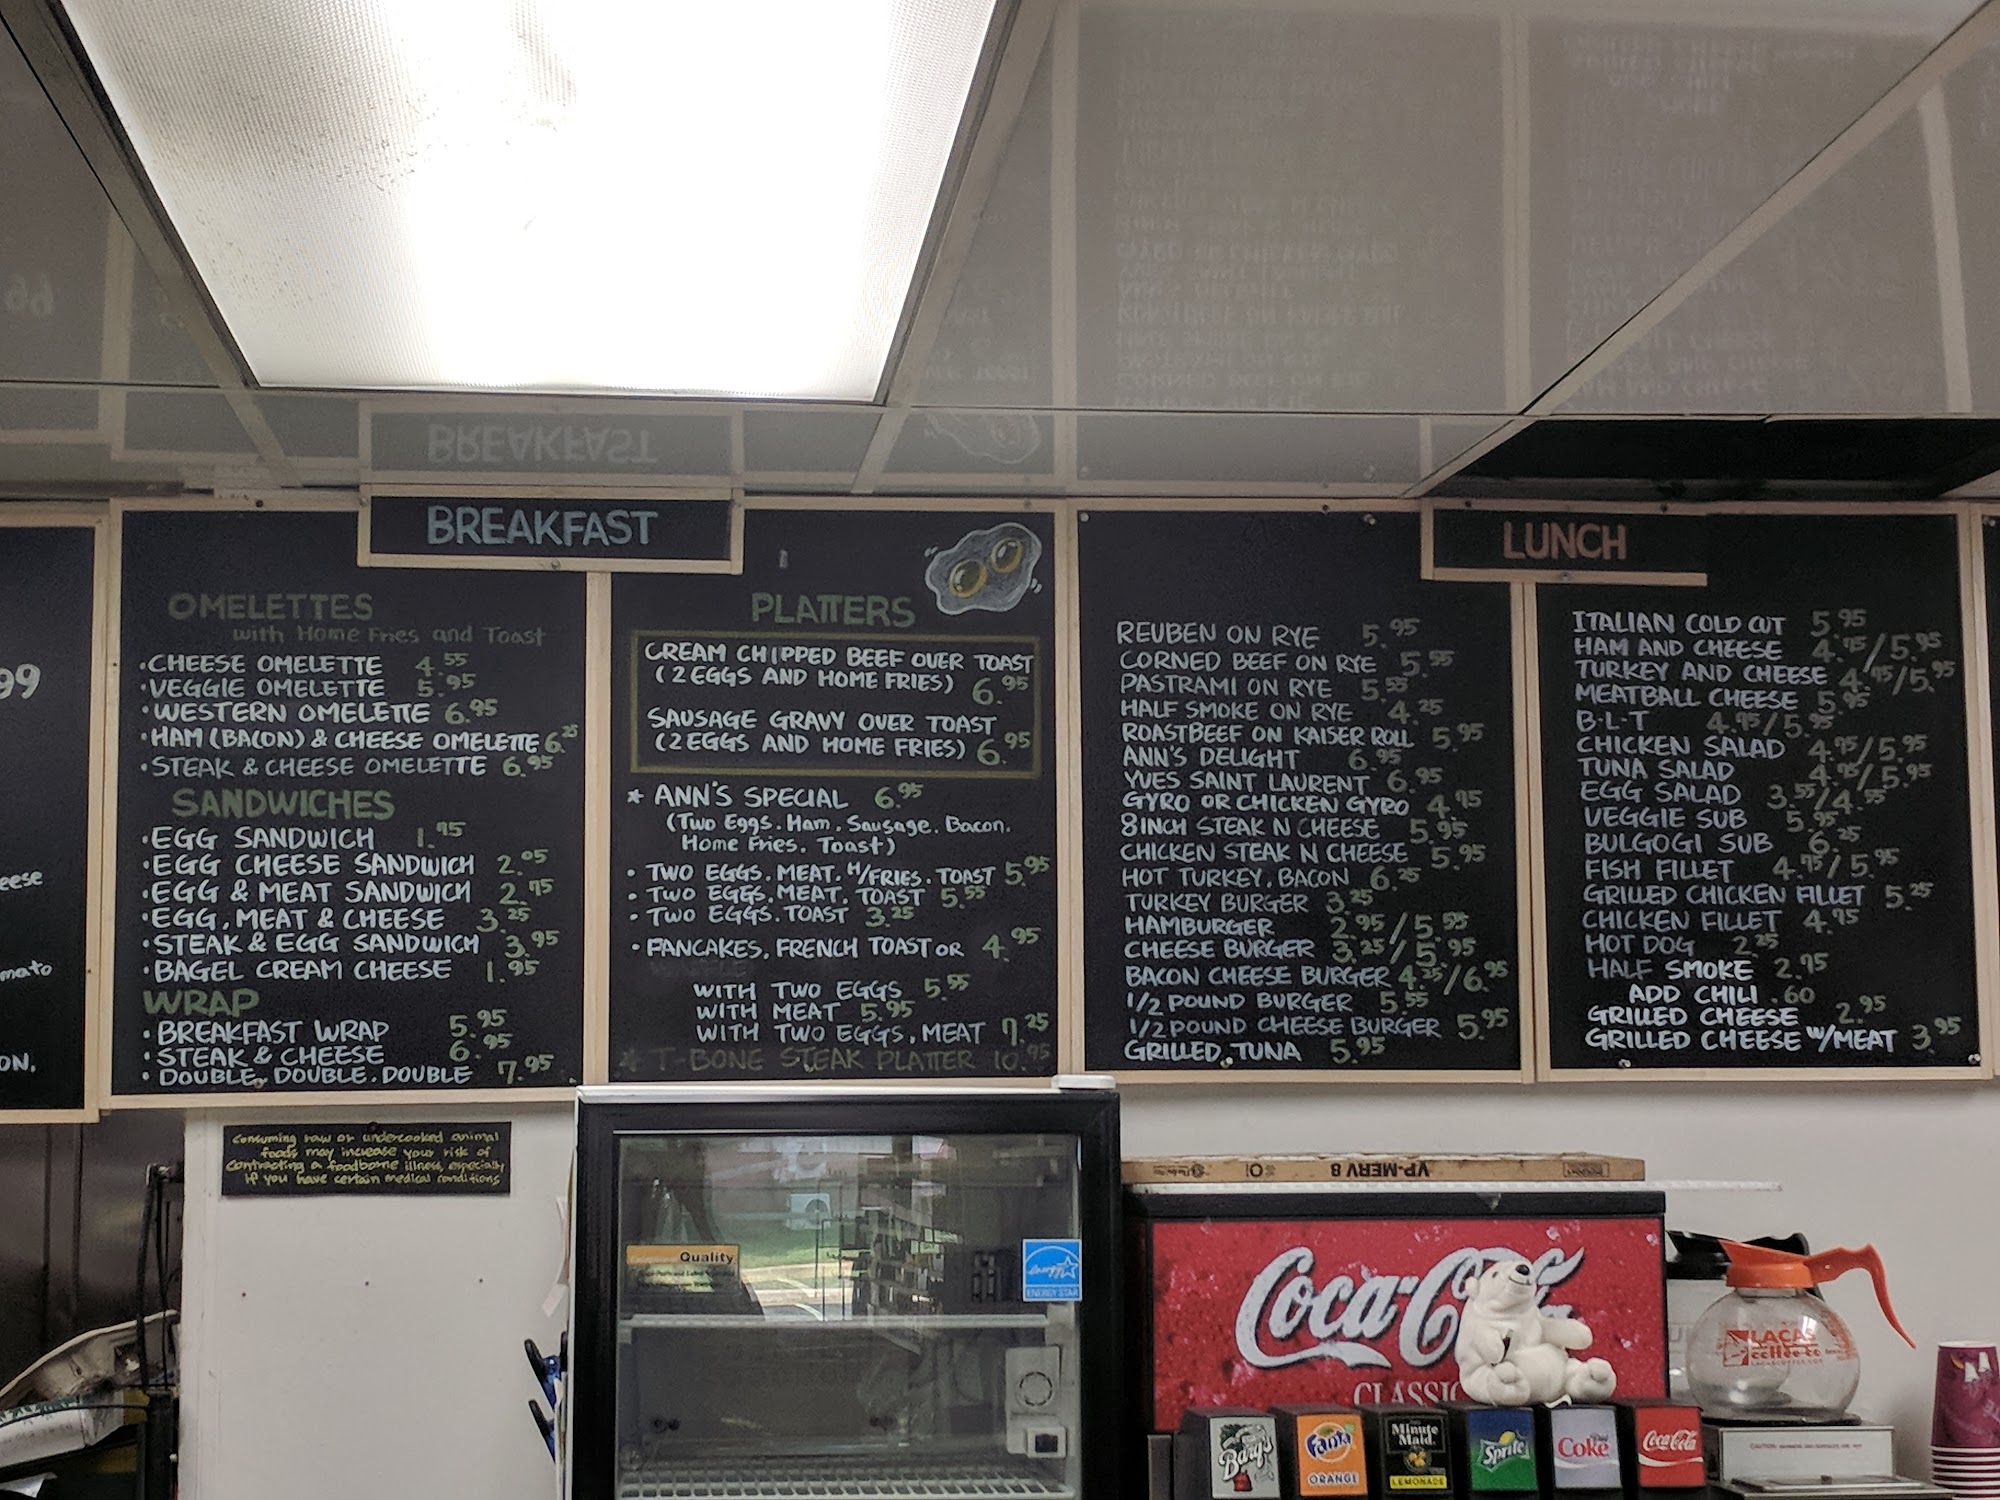 99
eese
mato
ON.
BREAKFAST
OMELETTES
with Home Fries and Toast
•CHEESE OMELETTE 4.55
•VEGGIE OMELETTE 5.95
•WESTERN OMELETTE 6.95
•HAM (BACON) & CHEESE OMELETTE 6.25
•STEAK & CHEESE OMELETTE 6.95
SANDWICHES
•EGG SANDWICH 1.95
•EGG CHEESE SANDWICH 2.05
•EGG & MEAT SANDWICH 2.75
•EGG, MEAT & CHEESE 3.25
•STEAK & EGG SANDWICH 3.95
•BAGEL CREAM CHEESE 1.95
WRAP
•BREAKFAST WRAP 5.95
•STEAK & CHEESE 6.95
•DOUBLE, DOUBLE, DOUBLE 7.95
PLATTERS
CREAM CHIPPED BEEF OVER TOAST
(2 EGGS AND HOME FRIES) 6.95
SAUSAGE GRAVY OVER TOAST
(2 EGGS AND HOME FRIES) 6.95
* ANN'S SPECIAL 6.95
(Two Eggs. Ham. Sausage. Bacon.
Home Fries. Toast)
• TWO EGGS. MEAT. H/FRIES. TOAST 5.95
• TWO EGGS. MEAT. TOAST 5.55
• TWO EGGS. TOAST 3.25
• PANCAKES, FRENCH TOAST OR 4.95
WITH TWO EGGS 5.55
WITH MEAT 5.95
WITH TWO EGGS, MEAT 7.25
* T-BONE STEAK PLATTER 10.95
LUNCH
REUBEN ON RYE 5.95
CORNED BEEF ON RYE 5.55
PASTRAMI ON RYE 5.55
HALF SMOKE ON RYE 4.25
ROASTBEEF ON KAISER ROLL 5.95
ANN'S DELIGHT 6.95
YVES SAINT LAURENT 6.95
GYRO OR CHICKEN GYRO 4.95
8INCH STEAK N CHEESE 5.95
CHICKEN STEAK N CHEESE 5.95
HOT TURKEY, BACON 6.25
TURKEY BURGER 3.25
HAMBURGER 2.95/5.55
CHEESE BURGER 3.25/5.95
BACON CHEESE BURGER 4.25/6.95
1/2 POUND BURGER 5.55
1/2 POUND CHEESE BURGER 5.95
GRILLED TUNA 5.95
ITALIAN COLD CUT 5.95
HAM AND CHEESE 4.75/5.95
TURKEY AND CHEESE 4.75/5.95
MEATBALL CHEESE 5.95
B·L·T 4.75/5.95
CHICKEN SALAD 4.75/5.95
TUNA SALAD 4.75/5.95
EGG SALAD 3.55/4.55
VEGGIE SUB 5.95
BULGOGI SUB 6.25
FISH FILLET 4.75/5.95
GRILLED CHICKEN FILLET 5.25
CHICKEN FILLET 4.75
HOT DOG 2.25
HALF SMOKE 2.75
ADD CHILI .60
GRILLED CHEESE 2.95
GRILLED CHEESE W/MEAT 3.95
Consuming raw or undercooked animal
foods may increase your risk of
Contracting a foodborne illness, especially
if you have certain medical conditions
Quality
energy
ENERGY STAR
VP-MERV 8
Coca-Cola
CLASSIC
LACAS
coffee co
Barq's
Fanta
ORANGE
Minute
Maid
LEMONADE
Sprite
Diet
Coke
Coca-Cola